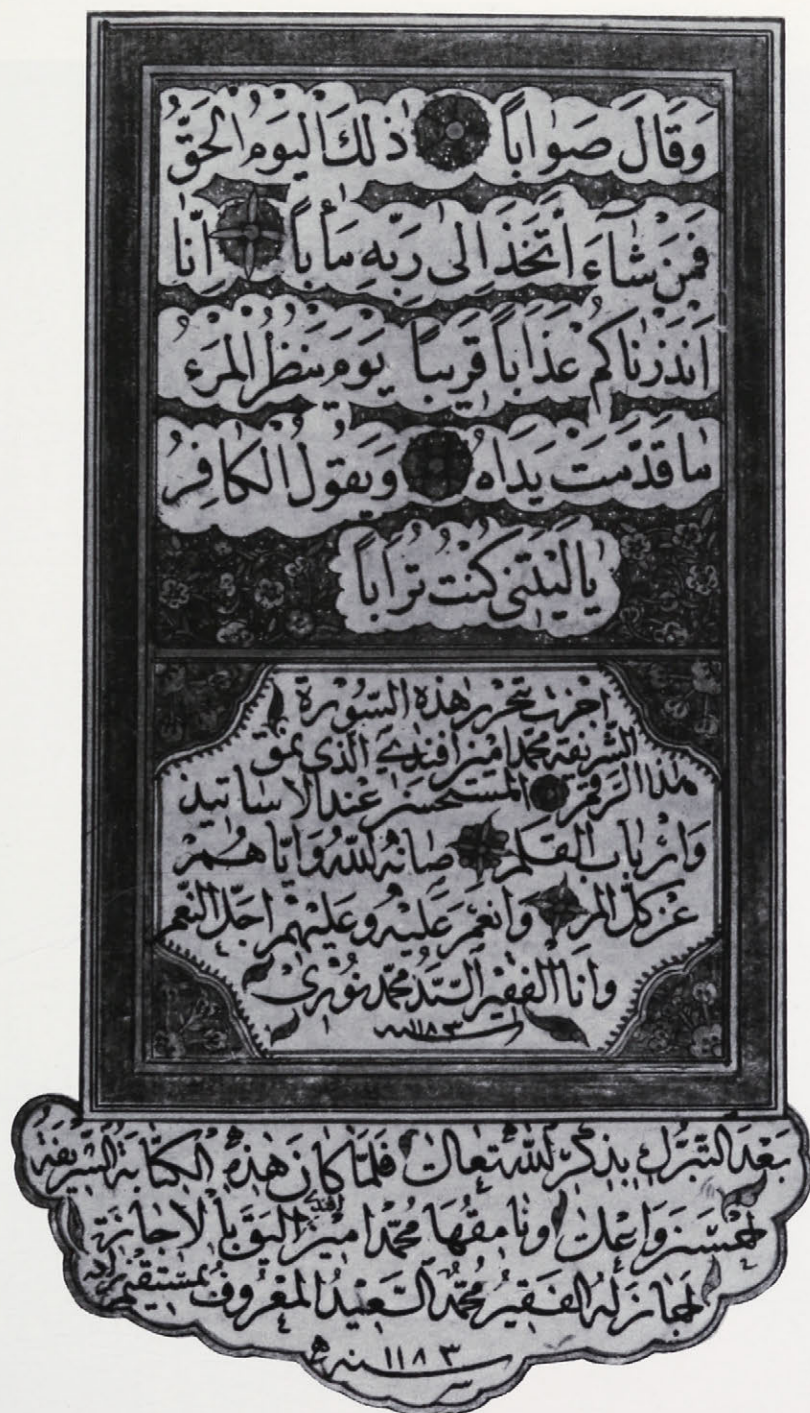 وَقَالَ صَوَاباً ذٰلِكَ الْيَوْمُ الْحَقُّ
فَمَنْ شَآءَ اتَّخَذَ اِلٰى رَبِّهِ مَأٰباً اِنَّا
اَنْذَرْنَاكُمْ عَذَاباً قَرِيباً يَوْمَ يَنْظُرُ الْمَرْءُ
مَا قَدَّمَتْ يَدَاهُ وَيَقُولُ الْكَافِرُ
يَا لَيْتَنِى كُنْتُ تُرَاباً
اجزت بتحرير هذه السورة
الشريفة محمد امين افندي الذى نمق
هذا الرقم المستحسن عند الاساتيذ
وارباب القلم صانه الله واياهم
عن كل الم وانعم عليه وعليهم اجل النعم
وانا الفقير السيد محمد نورى
سنه ١١٨٣
بعد التبرك بذكر الله تعالى فلما كان هذه الكتابة الشريفة
احسن واعلى ونامقها محمد امين افندى اليق بالاجازة
اجازله الفقير محمد السعيد المعروف بمستقيم زاده
سنه ١١٨٣